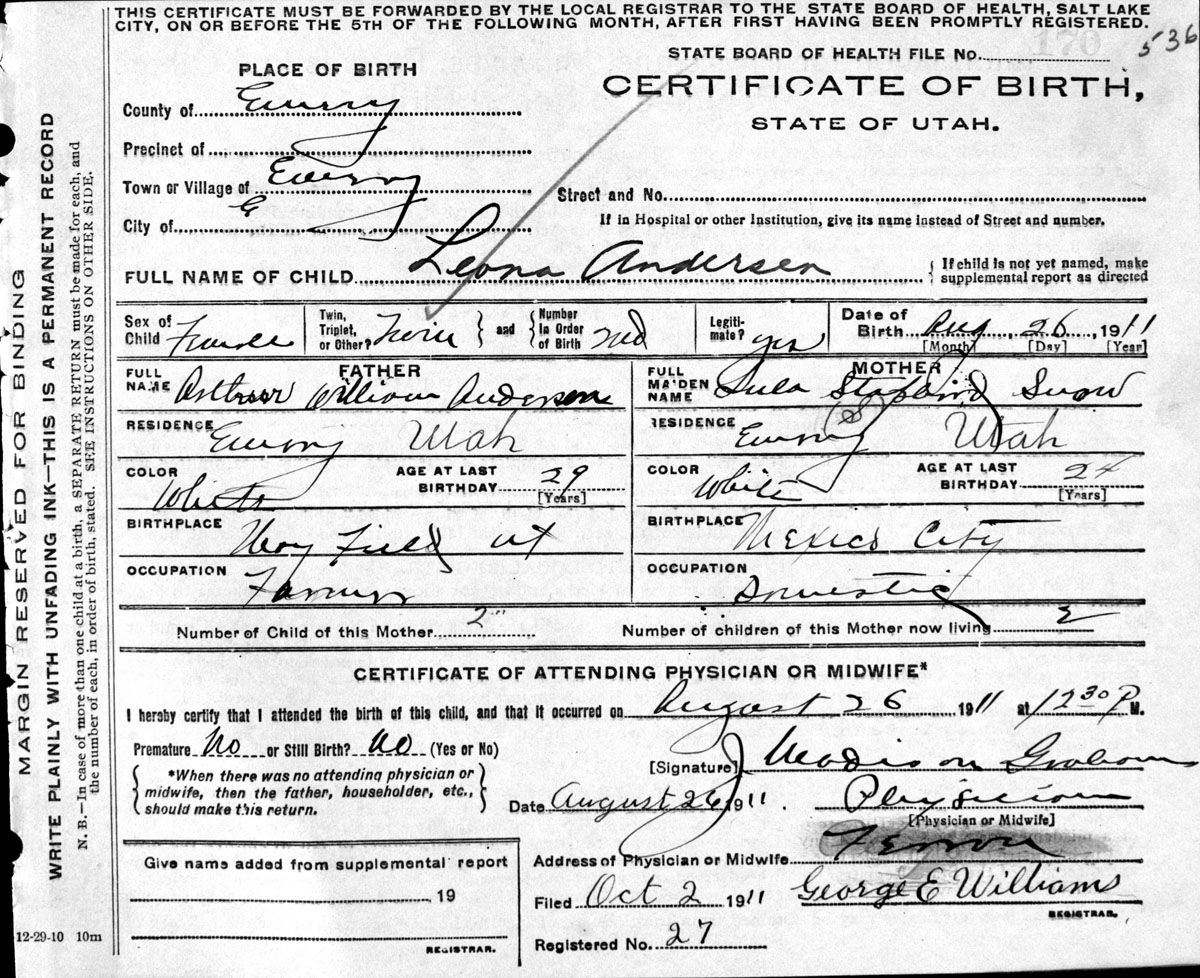 THIS CERTIFICATE MUST BE FORWARDED BY THE LOCAL REGISTRAR TO THE STATE BOARD OF HEALTH, SALT LAKE
CITY, ON OR BEFORE THE 5TH OF THE FOLLOWING MONTH, AFTER FIRST HAVING BEEN PROMPTLY REGISTERED.
170
536
STATE BOARD OF HEALTH FILE No.
PLACE OF BIRTH
CERTIFICATE OF BIRTH,
STATE OF UTAH.
County of Emery
Precinct of
Town or Village of Emery
City of
Street and No.
If in Hospital or other Institution, give its name instead of Street and number.
FULL NAME OF CHILD Leona Andersen
{ If child is not yet named, make
supplemental report as directed
Sex of Child Female
Twin, Triplet, or Other? Twin } and { Number In Order of Birth 2nd
Legiti-mate? yes
Date of Birth Aug 26, 1911
[Month] [Day] [Year]
FATHER
FULL NAME William Andersen
RESIDENCE Emery Utah
COLOR White
AGE AT LAST BIRTHDAY 29
[Years]
BIRTHPLACE
OCCUPATION Farmer
MOTHER
FULL MAIDEN NAME Lula Snow
RESIDENCE Emery Utah
COLOR White
AGE AT LAST BIRTHDAY 24
[Years]
BIRTHPLACE Mexico City
OCCUPATION Domestic
Number of Child of this Mother 2
Number of children of this Mother now living 2
CERTIFICATE OF ATTENDING PHYSICIAN OR MIDWIFE*
I hereby certify that I attended the birth of this child, and that it occurred on August 26 1911 at 12 30 P M.
Premature No or Still Birth? No (Yes or No)
{ *When there was no attending physician or
midwife, then the father, householder, etc.,
should make this return. }
[Signature]
Date August 26 1911.
Physician
[Physician or Midwife]
Address of Physician or Midwife Ferron
Give name added from supplemental report
19
REGISTRAR.
Filed Oct 2 1911
George E Williams
REGISTRAR.
Registered No. 27
12-29-10 10m
MARGIN RESERVED FOR BINDING
WRITE PLAINLY WITH UNFADING INK—THIS IS A PERMANENT RECORD
N. B.—In case of more than one child at a birth, a SEPARATE RETURN must be made for each, and
the number of each, in order of birth, stated. SEE INSTRUCTIONS ON OTHER SIDE.